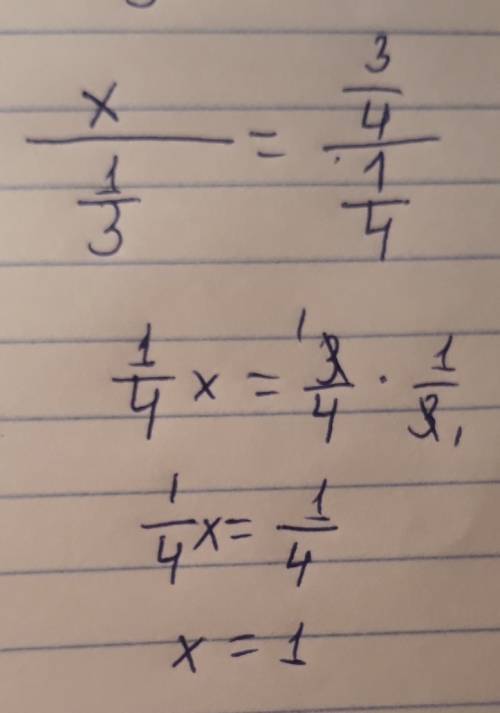 x/(1/3) = (3/4)/(1/4)
1/4 x = 3/4 · 1/3
1/4 x = 1/4
x = 1